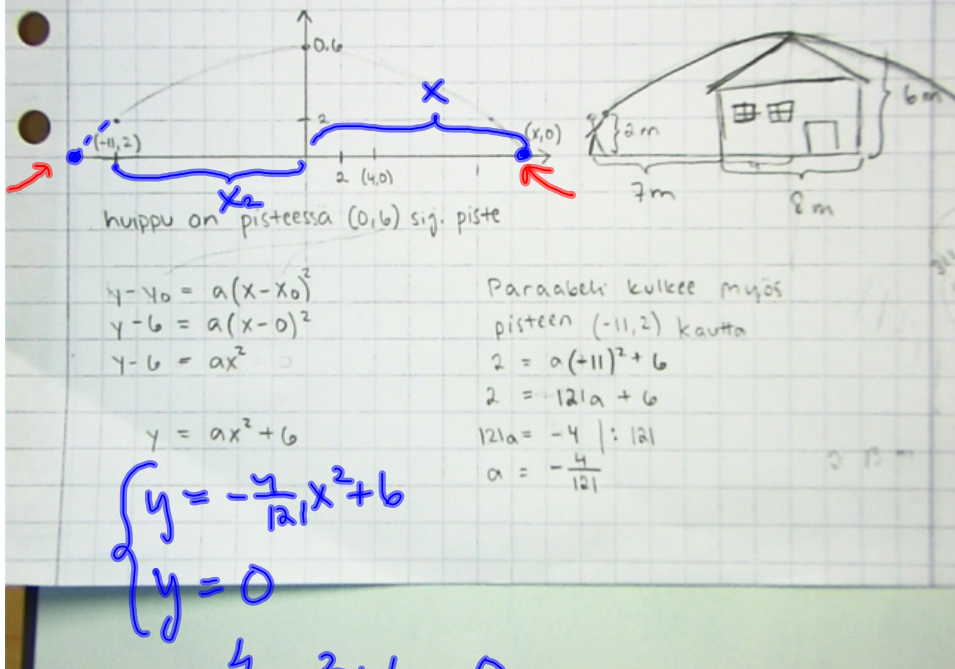 0.6
x
6m
2
(-11,2)
(x,0)
2m
2 (4,0)
1
x₂
7m
8m
huippu on pisteessä (0,6) sij. piste
y-y₀ = a(x-x₀)²
y-6 = a(x-0)²
y-6 = ax²
y = ax²+6
Paraabeli kulkee myös
pisteen (-11,2) kautta
2 = a(-11)²+6
2 = 121a + 6
121a = -4 |: 121
a = -4/121
y = -4/121 x²+6
y = 0